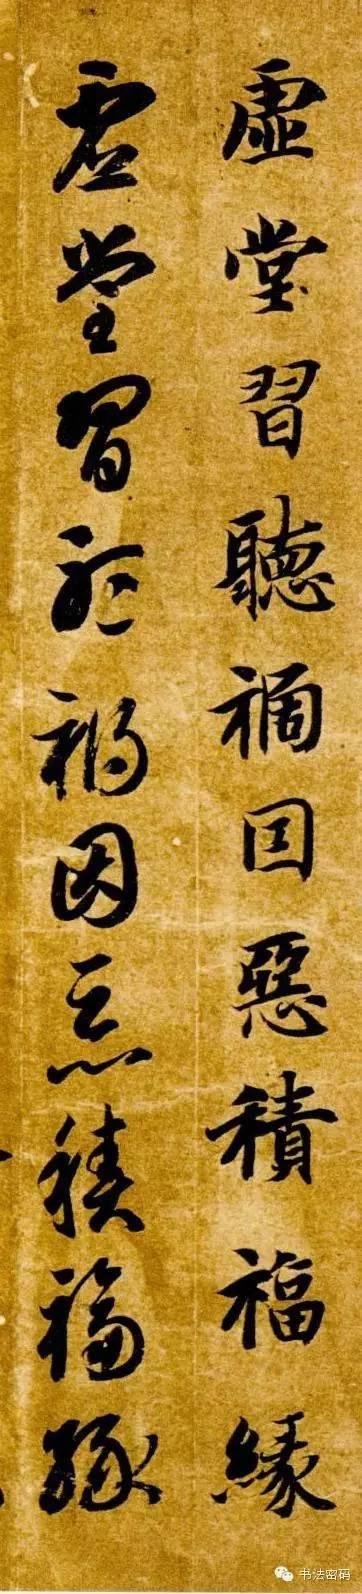 虛堂習聽禍因惡積福緣
虛堂習聽禍因惡積福緣
书法密码